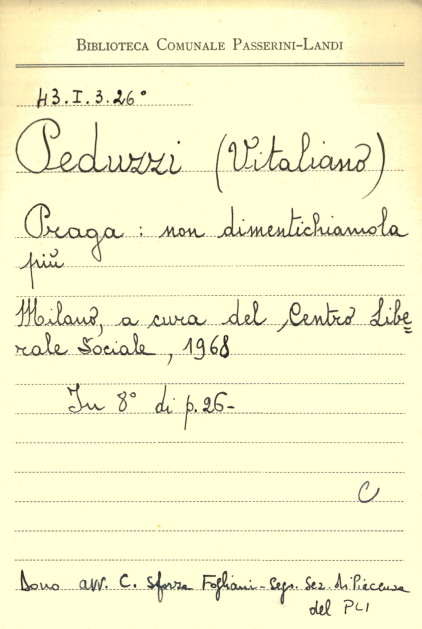 BIBLIOTECA COMUNALE PASSERINI-LANDI
43.I.3.26°
Peduzzi (Vitaliano)
Praga : non dimentichiamola
più
Milano, a cura del Centro Libe=
rale Sociale, 1968
In 8° di p. 26-
C
Dono avv. C. Sforza Fogliani - Segr. Sez. di Piacenza
del PLI